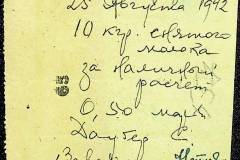 25 Августа 1942
10 кгр. снятого
молока
за наличный
расчет
0,50 марк
Даубер Е
Зав